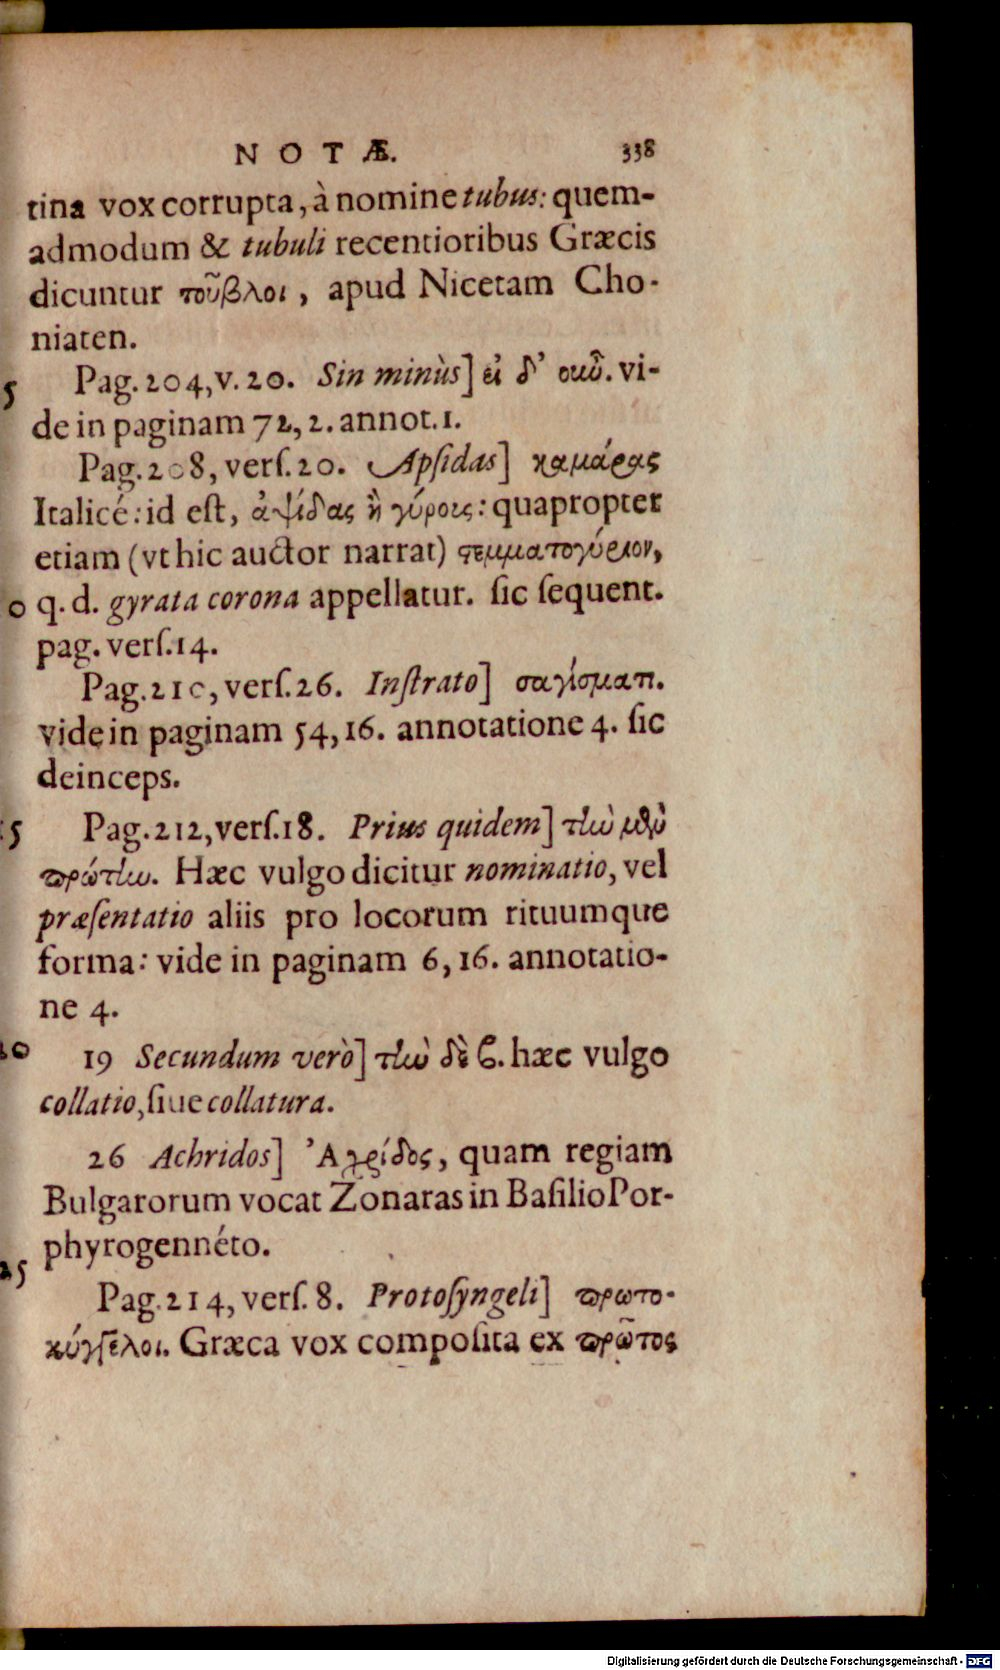 NOTÆ. 338
tina vox corrupta, à nomine tubus: quem-
admodum & tubuli recentioribus Græcis
dicuntur τοῦβλοι, apud Nicetam Cho-
niaten.
5 Pag. 204, v. 20. Sin minùs] εἰ δ' οὐκ. vi-
de in paginam 72, 2. annot. 1.
Pag. 208, verſ. 20. Apſidas] καμάρας
Italicé: id eſt, ἀψίδας ἢ γύροις: quapropter
etiam (vt hic auctor narrat) ϛεμματογύριον,
0 q. d. gyrata corona appellatur. ſic ſequent.
pag. verſ. 14.
Pag. 210, verſ. 26. Inſtrato] σαγίσματι.
vide in paginam 54, 16. annotatione 4. ſic
deinceps.
15 Pag. 212, verſ. 18. Prius quidem] τὴν μὲν
πρώτην. Hæc vulgo dicitur nominatio, vel
præſentatio aliis pro locorum rituumque
forma: vide in paginam 6, 16. annotatio-
ne 4.
20 19 Secundum verò] τὴν δὲ β. hæc vulgo
collatio, ſiue collatura.
26 Achridos] Ἀχρίδος, quam regiam
Bulgarorum vocat Zonaras in Baſilio Por-
phyrogennéto.
25 Pag. 214, verſ. 8. Protoſyngeli] πρωτο-
Græca vox compoſita ex πρῶτος
Digitalisierung gefördert durch die Deutsche Forschungsgemeinschaft - DFG